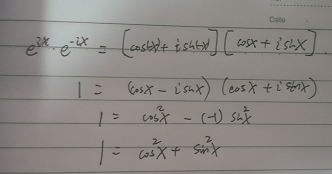 Date
e^{ix} · e^{-ix} = [cos(-x) + i sin(-x)] [cosx + i sinx]
1 = (cosx - i sinx) (cosx + i sinx)
1 = cos²x - (-1) sin²x
1 = cos²x + sin²x